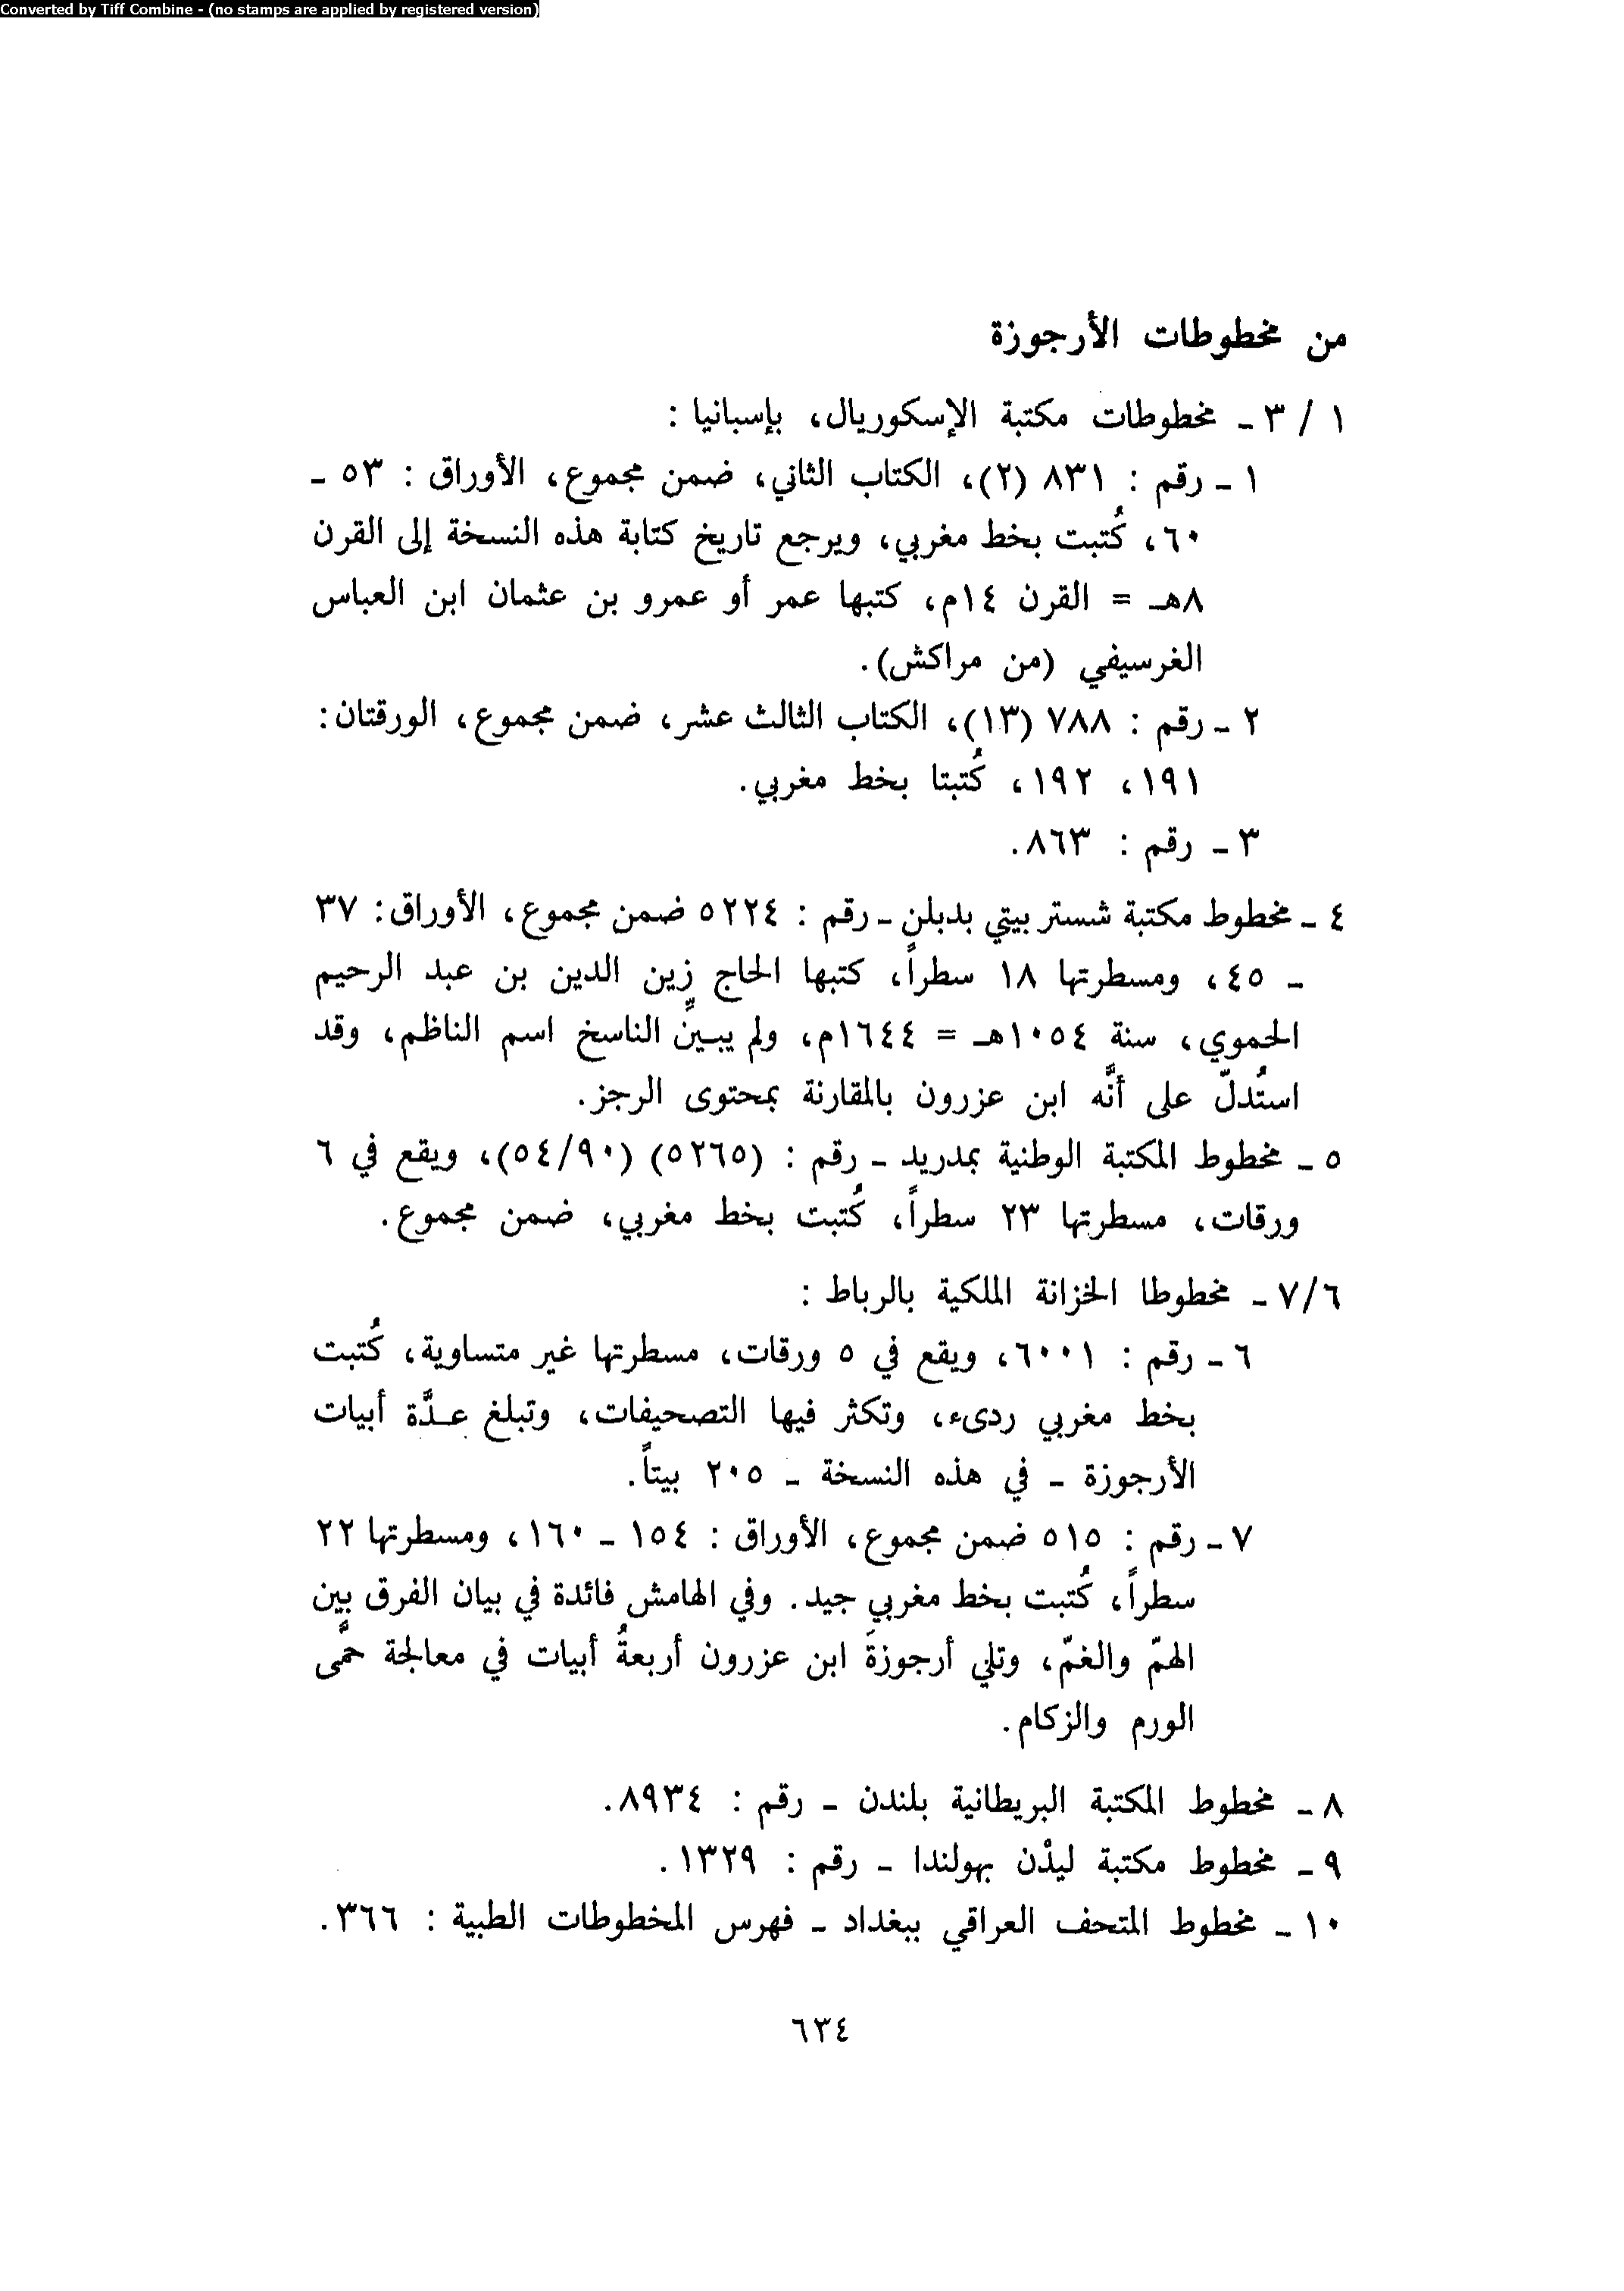 Converted by Tiff Combine - (no stamps are applied by registered version)
من مخطوطات الأرجوزة
١ / ٣ - مخطوطات مكتبة الإسكوريال، بإسبانيا :
١ - رقم : ٨٣١ (٢)، الكتاب الثاني، ضمن مجموع، الأوراق : ٥٣ -
٦٠، كُتبت بخط مغربي، ويرجع تاريخ كتابة هذه النسخة إلى القرن
٨هـ = القرن ١٤م، كتبها عمر أو عمرو بن عثمان ابن العباس
الغرسيفي (من مراكش).
٢ - رقم : ٧٨٨ (١٣)، الكتاب الثالث عشر، ضمن مجموع، الورقتان:
١٩١، ١٩٢، كُتبتا بخط مغربي.
٣ - رقم : ٨٦٣.
٤ - مخطوط مكتبة شستر بيتي بدبلن - رقم : ٥٢٢٤ ضمن مجموع، الأوراق: ٣٧
- ٤٥، ومسطرتها ١٨ سطراً، كتبها الحاج زين الدين بن عبد الرحيم
الحموي، سنة ١٠٥٤هـ = ١٦٤٤م، ولم يبيِّن الناسخ اسم الناظم، وقد
استُدلّ على أنَّه ابن عزرون بالمقارنة بمحتوى الرجز.
٥ - مخطوط المكتبة الوطنية بمدريد - رقم : (٥٢٦٥) (٥٤/٩٠)، ويقع في ٦
ورقات، مسطرتها ٢٣ سطراً، كُتبت بخط مغربي، ضمن مجموع.
٧/٦ - مخطوطا الخزانة الملكية بالرباط :
٦ - رقم : ٦٠٠١، ويقع في ٥ ورقات، مسطرتها غير متساوية، كُتبت
بخط مغربي ردىء، وتكثر فيها التصحيفات، وتبلغ عـدَّة أبيات
الأرجوزة - في هذه النسخة - ٢٠٥ بيتاً.
٧ - رقم : ٥١٥ ضمن مجموع، الأوراق : ١٥٤ - ١٦٠، ومسطرتها ٢٢
سطراً، كُتبت بخط مغربي جيد. وفي الهامش فائدة في بيان الفرق بين
الهمّ والغمّ، وتلي أرجوزةَ ابن عزرون أربعةُ أبيات في معالجة حمَّى
الورم والزكام.
٨ - مخطوط المكتبة البريطانية بلندن - رقم : ٨٩٣٤.
٩ - مخطوط مكتبة ليدْن بهولندا - رقم : ١٣٢٩.
١٠ - مخطوط المتحف العراقي ببغداد - فهرس المخطوطات الطبية : ٣٦٦.
٦٣٤